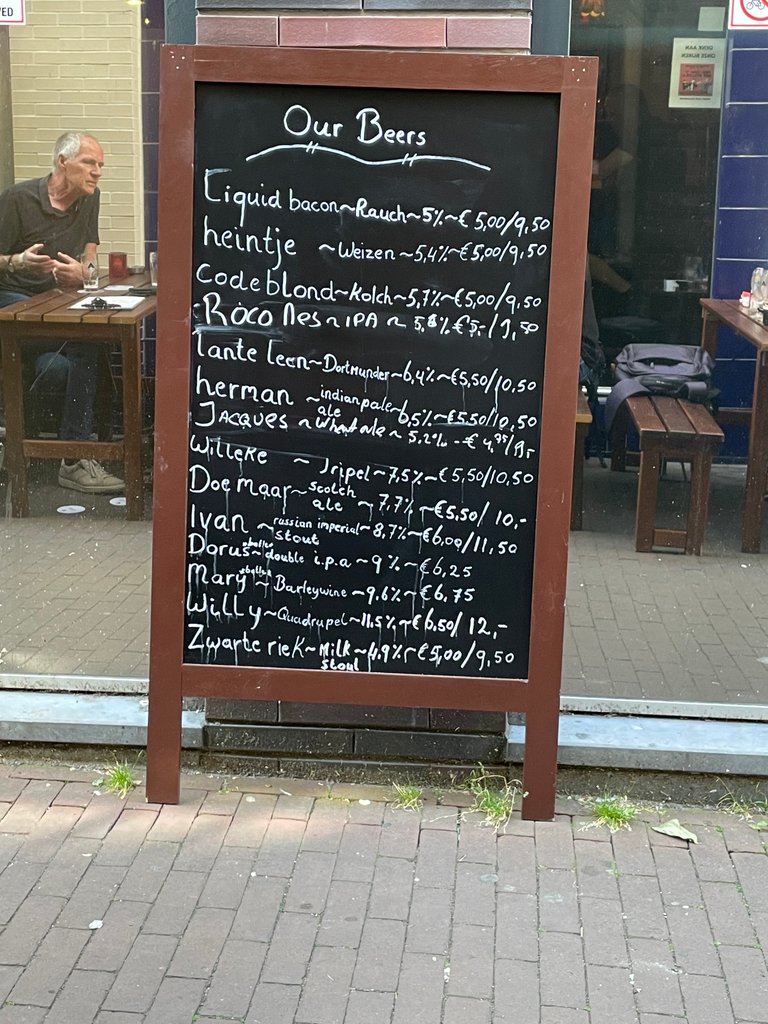 VED
DENK AAN
ONZE BUREN
Our Beers
Liquid bacon~Rauch~5%~€ 5,00/9,50
heintje ~Weizen~5,4%~€5,00/9,50
Codeblond~Kolch~5,7%~€5,00/9,50
Roco Nes~IPA~ 5,8% €5,-/9,50
tante leen~Dortmunder~6,4%~€5,50/10,50
herman ~indianpale ale ~6,5%~€5.50/10,50
JACQUES ~ What ale ~ 5,2% -€ 4,75/9,-
Willeke ~ Tripel~7,5%~€5,50/10,50
Doe maar~scotch ale ~ 7,7%~€5,50/10,-
Ivan ~russian imperial stout~8,7%~€6,00/11,50
Dorus~double i.p.a~9%~€6,25
Mary ~Barleywine~9,6%~€6,75
Willy~Quadrupel~11,5%~€6,50/12,-
Zwarte riek~Milk stout~4.9%~€5,00/9,50